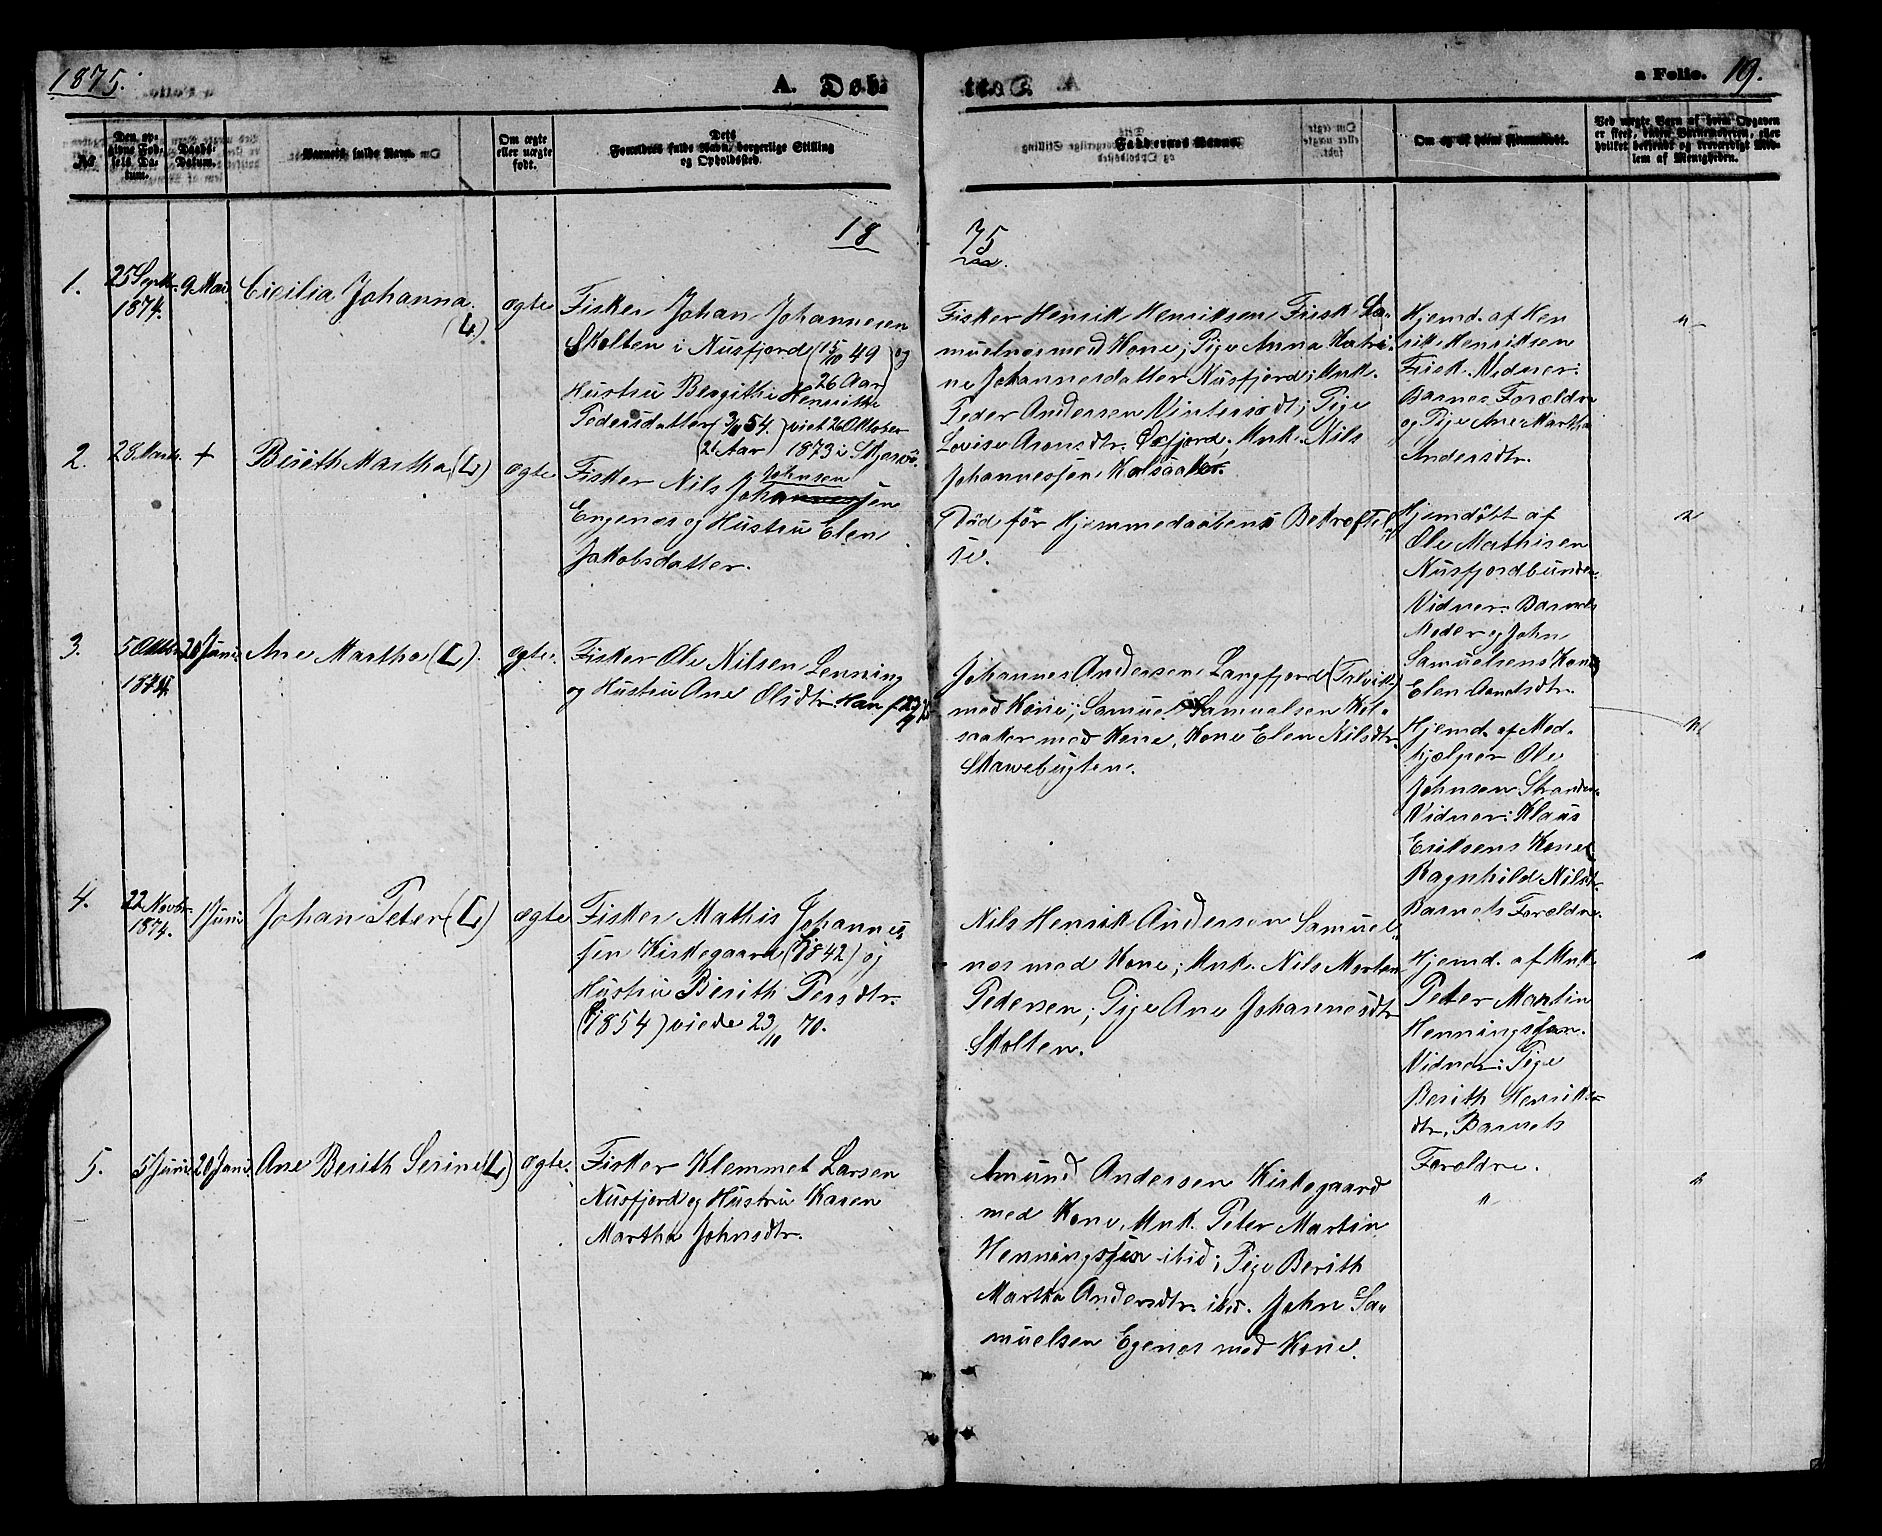 1875.
A. Døb-
a Folio. 19.
No
Den opgivne Fødsels Datum.
Daabs-Datum.
Barnets fulde Navn.
Om ægte eller uægte født.
Dets Forældres fulde Navn, borgerlige Stilling og Opholdssted.
Faddernes Navne.
Om og af hvem hjemmedøbt.
Ved uægte Børn af hvem Opgaven er skeet, baade Barnemoderen, eller hvilket bekjendt og troværdigt Medlem af Menigheden.
18
75
1.
25 Septbr.
1874.
9 Mai.
Cicilia Johanna
(L)
ægte
Fisker Johan Johannesen
Skolten i Nusfjord (15/10 49 og
26 Aar)
Hustru Bergithe Henrikke
Pedersdatter (3/11 54. viet 26 Oktober
(21 Aar) 1873 i Skjervø.
Fisker Henrik Henriksen Fiisk Sa-
muelnes med Kone; Pige Anna Katri-
ne Johannesdatter Nusfjord; Unk.
Peder Andersen Vintersødt; Pige
Lovise Aronsdtr. Oxfjord, Unk. Nils
Johannessen Kolsaaker.
Hjemd. af Hen
rik Henriksen
Fiisk. Vidner:
Barnes Forældre
og Pige Ane Martha
Andersdtr.
"
2.
28 Marts.
+
Berith Martha (L)
ægte
Fisker Nils Johannessen
Johnsen
Engenes og Hustru Elen
Jakobsdatter.
Død før Hjemmedaabens Bekræftel-
se.
Hjemdøbt af
Ole Mathisen
Nusfjordbunden.
Vidner: Barnets
Moder og John
Samuelsens Kone
Elen Arntsdtr.
"
3.
5 Oktbr.
1874.
20 Juni.
Ane Martha (L).
ægte.
Fisker Ole Nilsen Lenning
og Hustru Ane Olsdtr.
Johannes Andersen Langfjord (Talvik)
med Kone; Samuel Samuelsen Kol-
saaker med Kone, Kone Elen Nilsdtr.
Skavebugten.
Hjemd. af Med-
hjælper Ole
Johnsen Stranden.
Vidner: Klaus
Eriksens Kone
Ragnhild Nilsdtr.
Barnets Forældre.
"
4.
22 Novbr.
1874.
1 Juni
Johan Peter (L)
ægte
Fisker Mathis Johannes-
sen Kirkegaard (1842) og
Hustru Berith Persdtr.
(1854) viede 23/10 70.
Nils Henrik Andersen Samuel-
nes med Kone; Unk. Nils Morten
Pedersen; Pige Ane Johannesdtr
Skolten.
Hjemd. af Unk.
Peter Martin
Henningsen.
Vidner: Pige
Berith Henriks-
dtr, Barnets
Forældre.
"
5.
5 Juni
20 Juni.
Ane Berith Serine (L)
ægte.
Fisker Klemmet Larsen
Nusfjord og Hustru Karen
Martha Johnsdtr.
Amund Andersen Kirkegaard
med Kone, Unk. Peter Martin
Henningssen ibid; Pige Berith
Martha Andersdtr. ibid. John Sa-
muelsen Egenes med Kone.
"
"